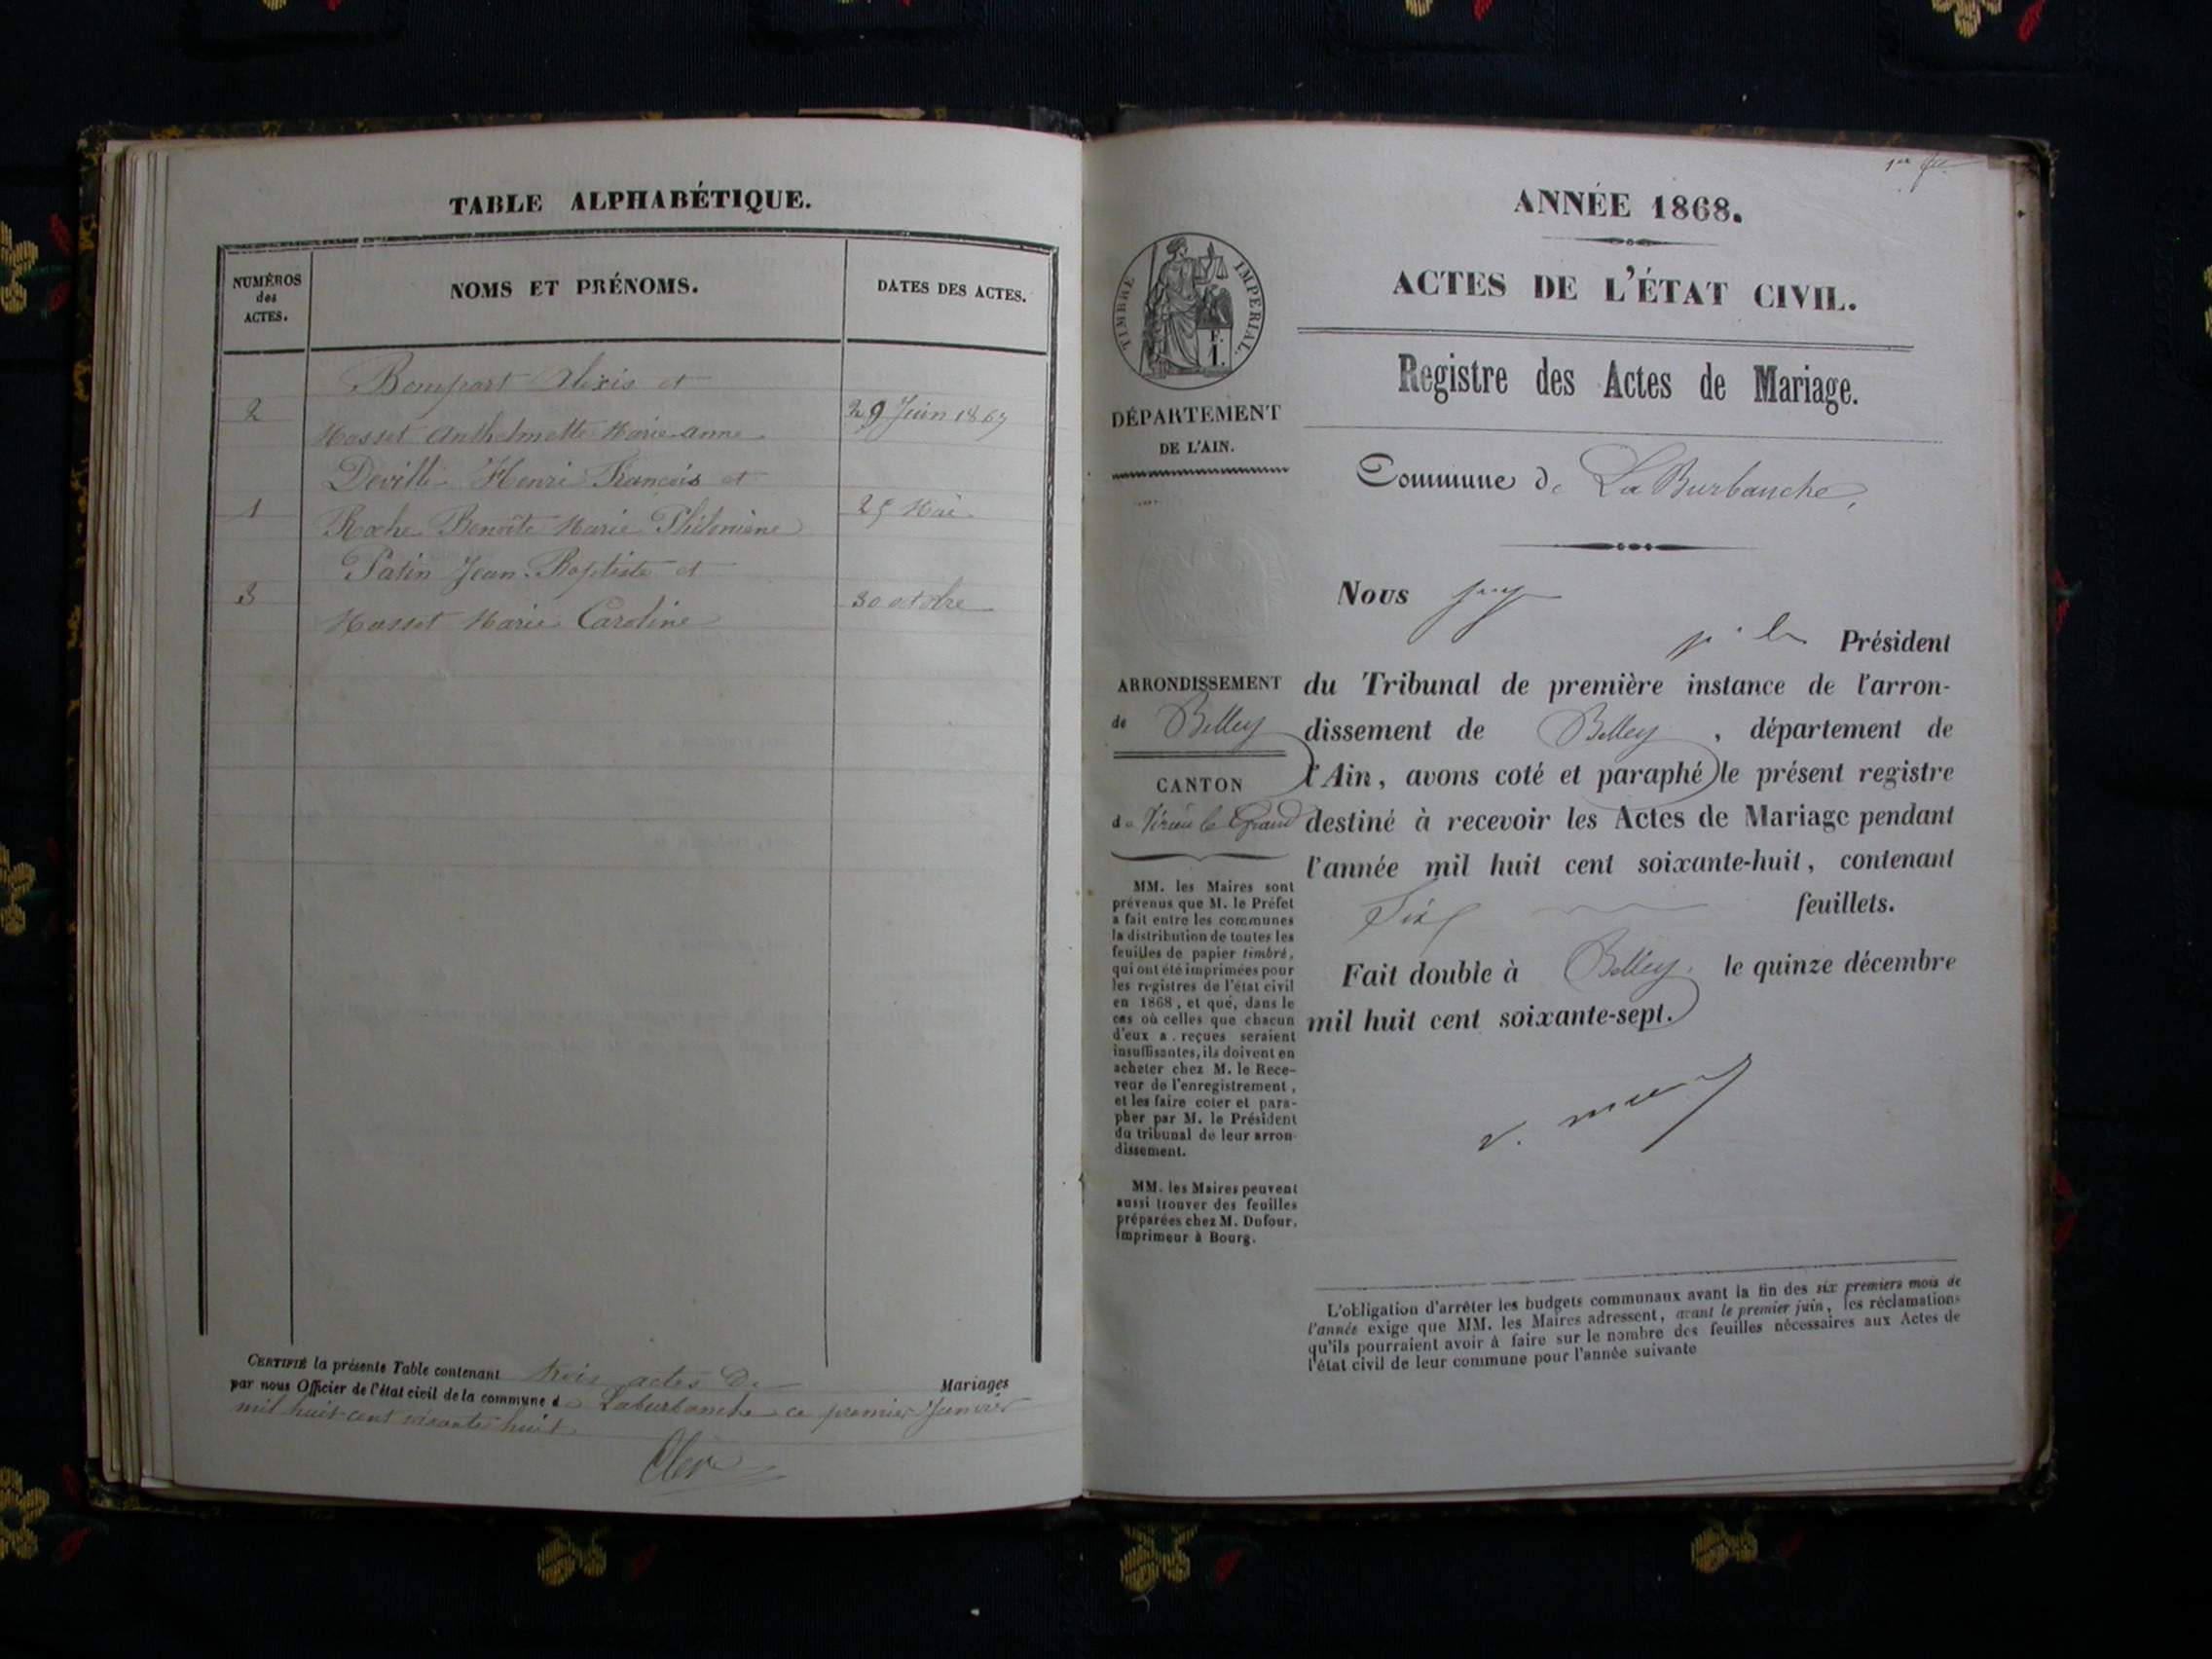 TABLE ALPHABÉTIQUE.
NUMÉROS
des
ACTES.
NOMS ET PRÉNOMS.
DATES DES ACTES.
Bompart Alexis et
2
29 Juin 1867
Masset Anthelmette Marie anne
Deville Henri François et
1
25 Mai
Roche Benoîte Marie Philomène
Patin Jean-Baptiste et
3
30 octobre
Masset Marie Caroline
CERTIFIÉ la présente Table contenant trois actes De Mariages
par nous Officier de l'état civil de la commune de Laburbanche ce premier Janvier
mil huit cent soixante huit
Clerc
ANNÉE 1868.
ACTES DE L'ÉTAT CIVIL.
Registre des Actes de Mariage.
TIMBRE IMPERIAL.
F.
1.
DÉPARTEMENT
DE L'AIN.
Commune de La Burbanche,
ARRONDISSEMENT
de Belley
CANTON
de Virieu le Grand
MM. les Maires sont
prévenus que M. le Préfet
a fait entre les communes
la distribution de toutes les
feuilles de papier timbré,
qui ont été imprimées pour
les registres de l'état civil
en 1868, et que, dans le
cas où celles que chacun
d'eux a reçues seraient
insuffisantes, ils doivent en
acheter chez M. le Rece-
veur de l'enregistrement,
et les faire coter et para-
pher par M. le Président
du tribunal de leur arron-
dissement.
MM. les Maires peuvent
aussi trouver des feuilles
préparées chez M. Dufour,
imprimeur à Bourg.
Nous
Président
du Tribunal de première instance de l'arron-
dissement de Belley, département de
l'Ain, avons coté et paraphé le présent registre
destiné à recevoir les Actes de Mariage pendant
l'année mil huit cent soixante-huit, contenant
Six feuillets.
Fait double à Belley, le quinze décembre
mil huit cent soixante-sept.
L'obligation d'arrêter les budgets communaux avant la fin des six premiers mois de
l'année exige que MM. les Maires adressent, avant le premier juin, les réclamations
qu'ils pourraient avoir à faire sur le nombre des feuilles nécessaires aux Actes de
l'état civil de leur commune pour l'année suivante